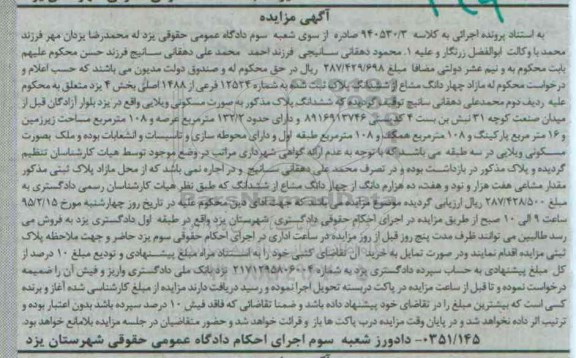 آگهی مزایده
به استناد پرونده اجرائی به کلاسه ۹۴۰۵۳۰/۳ صادره از سوی شعبه سوم دادگاه عمومی حقوقی یزد له محمدرضا یزدان مهر فرزند
محمد با وکالت ابوالفضل زرنگار و علیه ۱. محمود دهقانی سانیجی فرزند احمد محمد علی دهقانی سانیج فرزند حسن محکوم علیهم
بابت محکوم به و نیم عشر دولتی مضافا مبلغ ۲۸۷/۴۲۹/۶۹۸ ریال در حق محکوم له و صندوق دولت مدیون می باشند که حسب اعلام و
درخواست محکوم له مازاد چهار دانگ مشاع از ششدانگ پلاک ثبت شده به شماره ۱۲۵۲۴ فرعی از ۱۴۸۸ اصلی بخش ۴ یزد متعلق به محکوم
علیه ردیف دوم محمدعلی دهقانی سانیج توقیف گردیده که ششدانگ پلاک مذکور به صورت مسکونی ویلایی واقع در یزد بلوار آزادگان قبل از
میدان صنعت کوچه ۳۱ نبش بن بست ۴ کدپستی ۸۹۱۶۹۱۳۷۴۶ و دارای حدود ۱۳۲/۲ مترمربع عرصه و ۱۰۸ مترمربع مساحت زیرزمین
و ۱۶ متر مربع پارکینگ و ۱۰۸ مترمربع همکف و ۱۰۸ مترمربع طبقه اول و دارای محوطه سازی و تاسیسات و انشعابات بوده و ملک بصورت
مسکونی ویلایی در سه طبقه می باشد که با توجه به عدم ارائه گواهی شهرداری مراتب در وضع موجود توسط هیات کارشناسان تنظیم
گردیده و پلاک مذکور در بازداشت بوده و در تصرف محمد علی دهقانی سانیج و در اجاره نمی باشد که از محل مازاد پلاک ثبتی مذکور
مقدار مشاعی هفت هزار و نود و هفت، ده هزارم دانگ از چهار دانگ مشاع از ششدانگ که طبق نظر هیات کارشناسان رسمی دادگستری به
مبلغ ۲۸۷/۴۲۸/۵۰۰ ریال ارزیابی گردیده موضوع مزایده می باشد که جهت های دین محکوم علیه در تاریخ روز چهارشنبه مورخ ۹۵/۲/۱۵
ساعت ۹ الی ۱۰ صبح از طریق مزایده در اجرای احکام حقوقی دادگستری شهرستان یزد واقع در طبقه اول دادگستری یزد به فروش می
رسد طالبین می توانند ظرف مدت پنج روز قبل از روز مزایده در ساعت اداری در اجرای احکام حقوقی سوم یزد حاضر و جهت ملاحظه پلاک
ثبتی مزایده اقدام نمایند ودر صورت تمایل به خرید آن تقاضای کتبی خود را به استناد مراه مبلغ پیشنهادی و تودیع مبلغ ۱۰ درصد از
کل مبلغ پیشنهادی به حساب سپرده دادگستری یزد به شماره ۲۱۷۱۲۹۵۸۰۶۰۲۴ نزد بانک ملی دادگستری واریز و فیش آن را ضمیمه
درخواست نموده و تا قبل از ساعت مزایده در پاکت دربسته تحویل اجرا نموده و رسید دریافت دارند مزایده از مبلغ کارشناسی شده آغاز و برنده
کسی است که بیشترین مبلغ را در تقاضای خود پیشنهاد داده باشد و ضمنا تقاضائی که فاقد فیش ۱۰ درصد سپرده باشد بدون اعتبار بوده و
ترتیب اثر داده نخواهد شد و در پایان وقت مزایده درب پاکت ها باز و قرائت خواهد شد و حضور متقاضیان در جلسه مزایده بلامانع خواهد بود.
۰۳۵۱/۱۴۵- دادورز شعبه سوم اجرای احکام دادگاه عمومی حقوقی شهرستان یزد